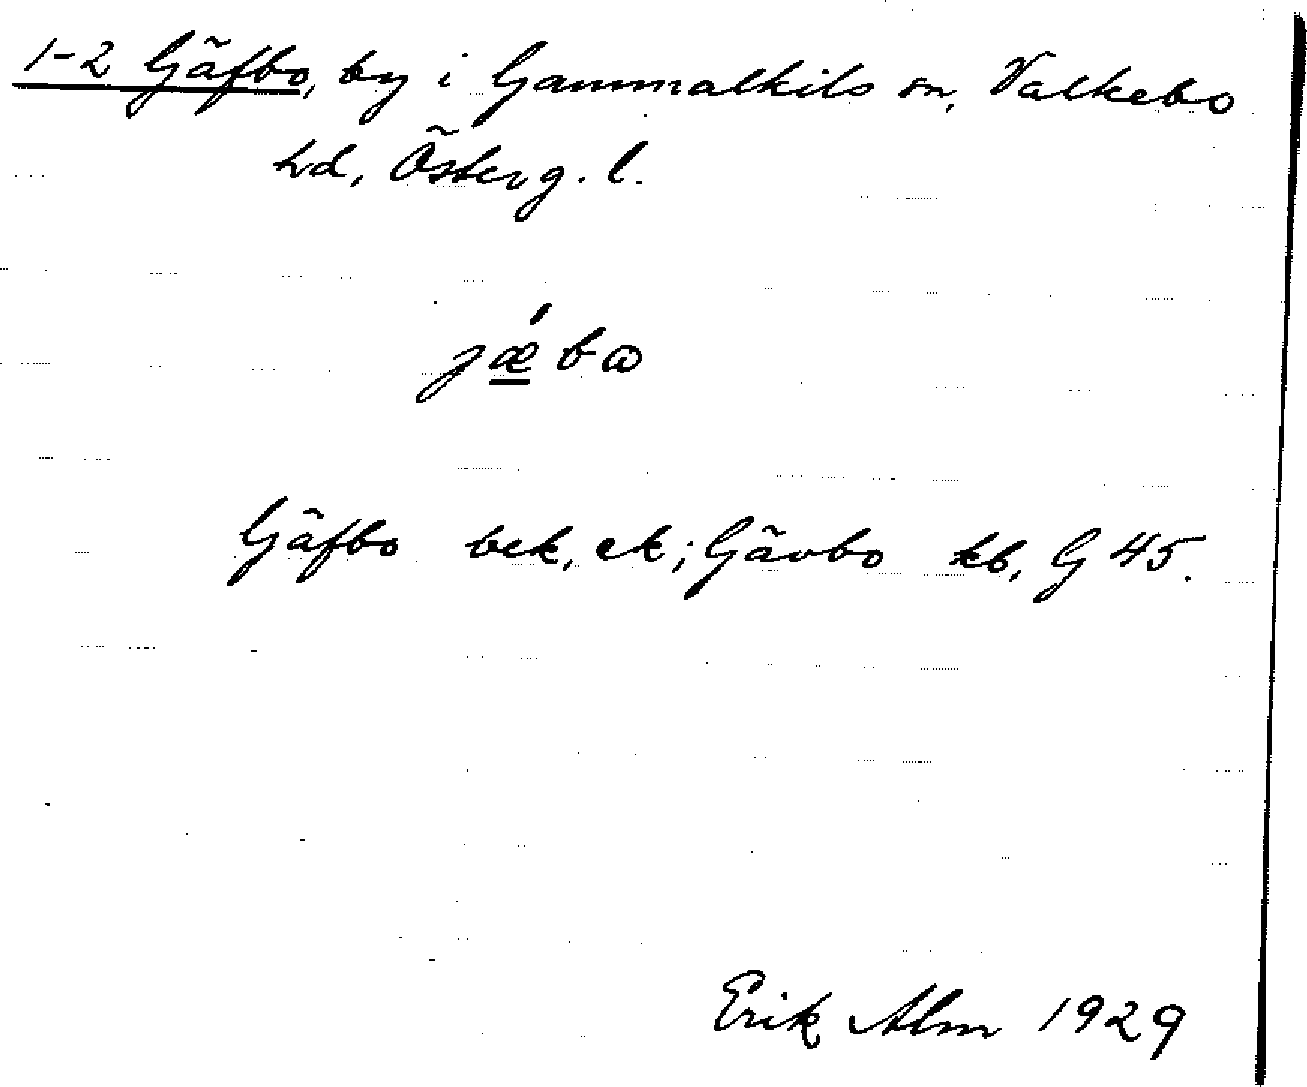 1-2 Gäfbo, by i Gammalkils sn, Valkebo
hd, Österg. l.
jǽbꞷ
Gäfbo bek, ek; Gävbo kb, G 45.
Erik Alm 1929